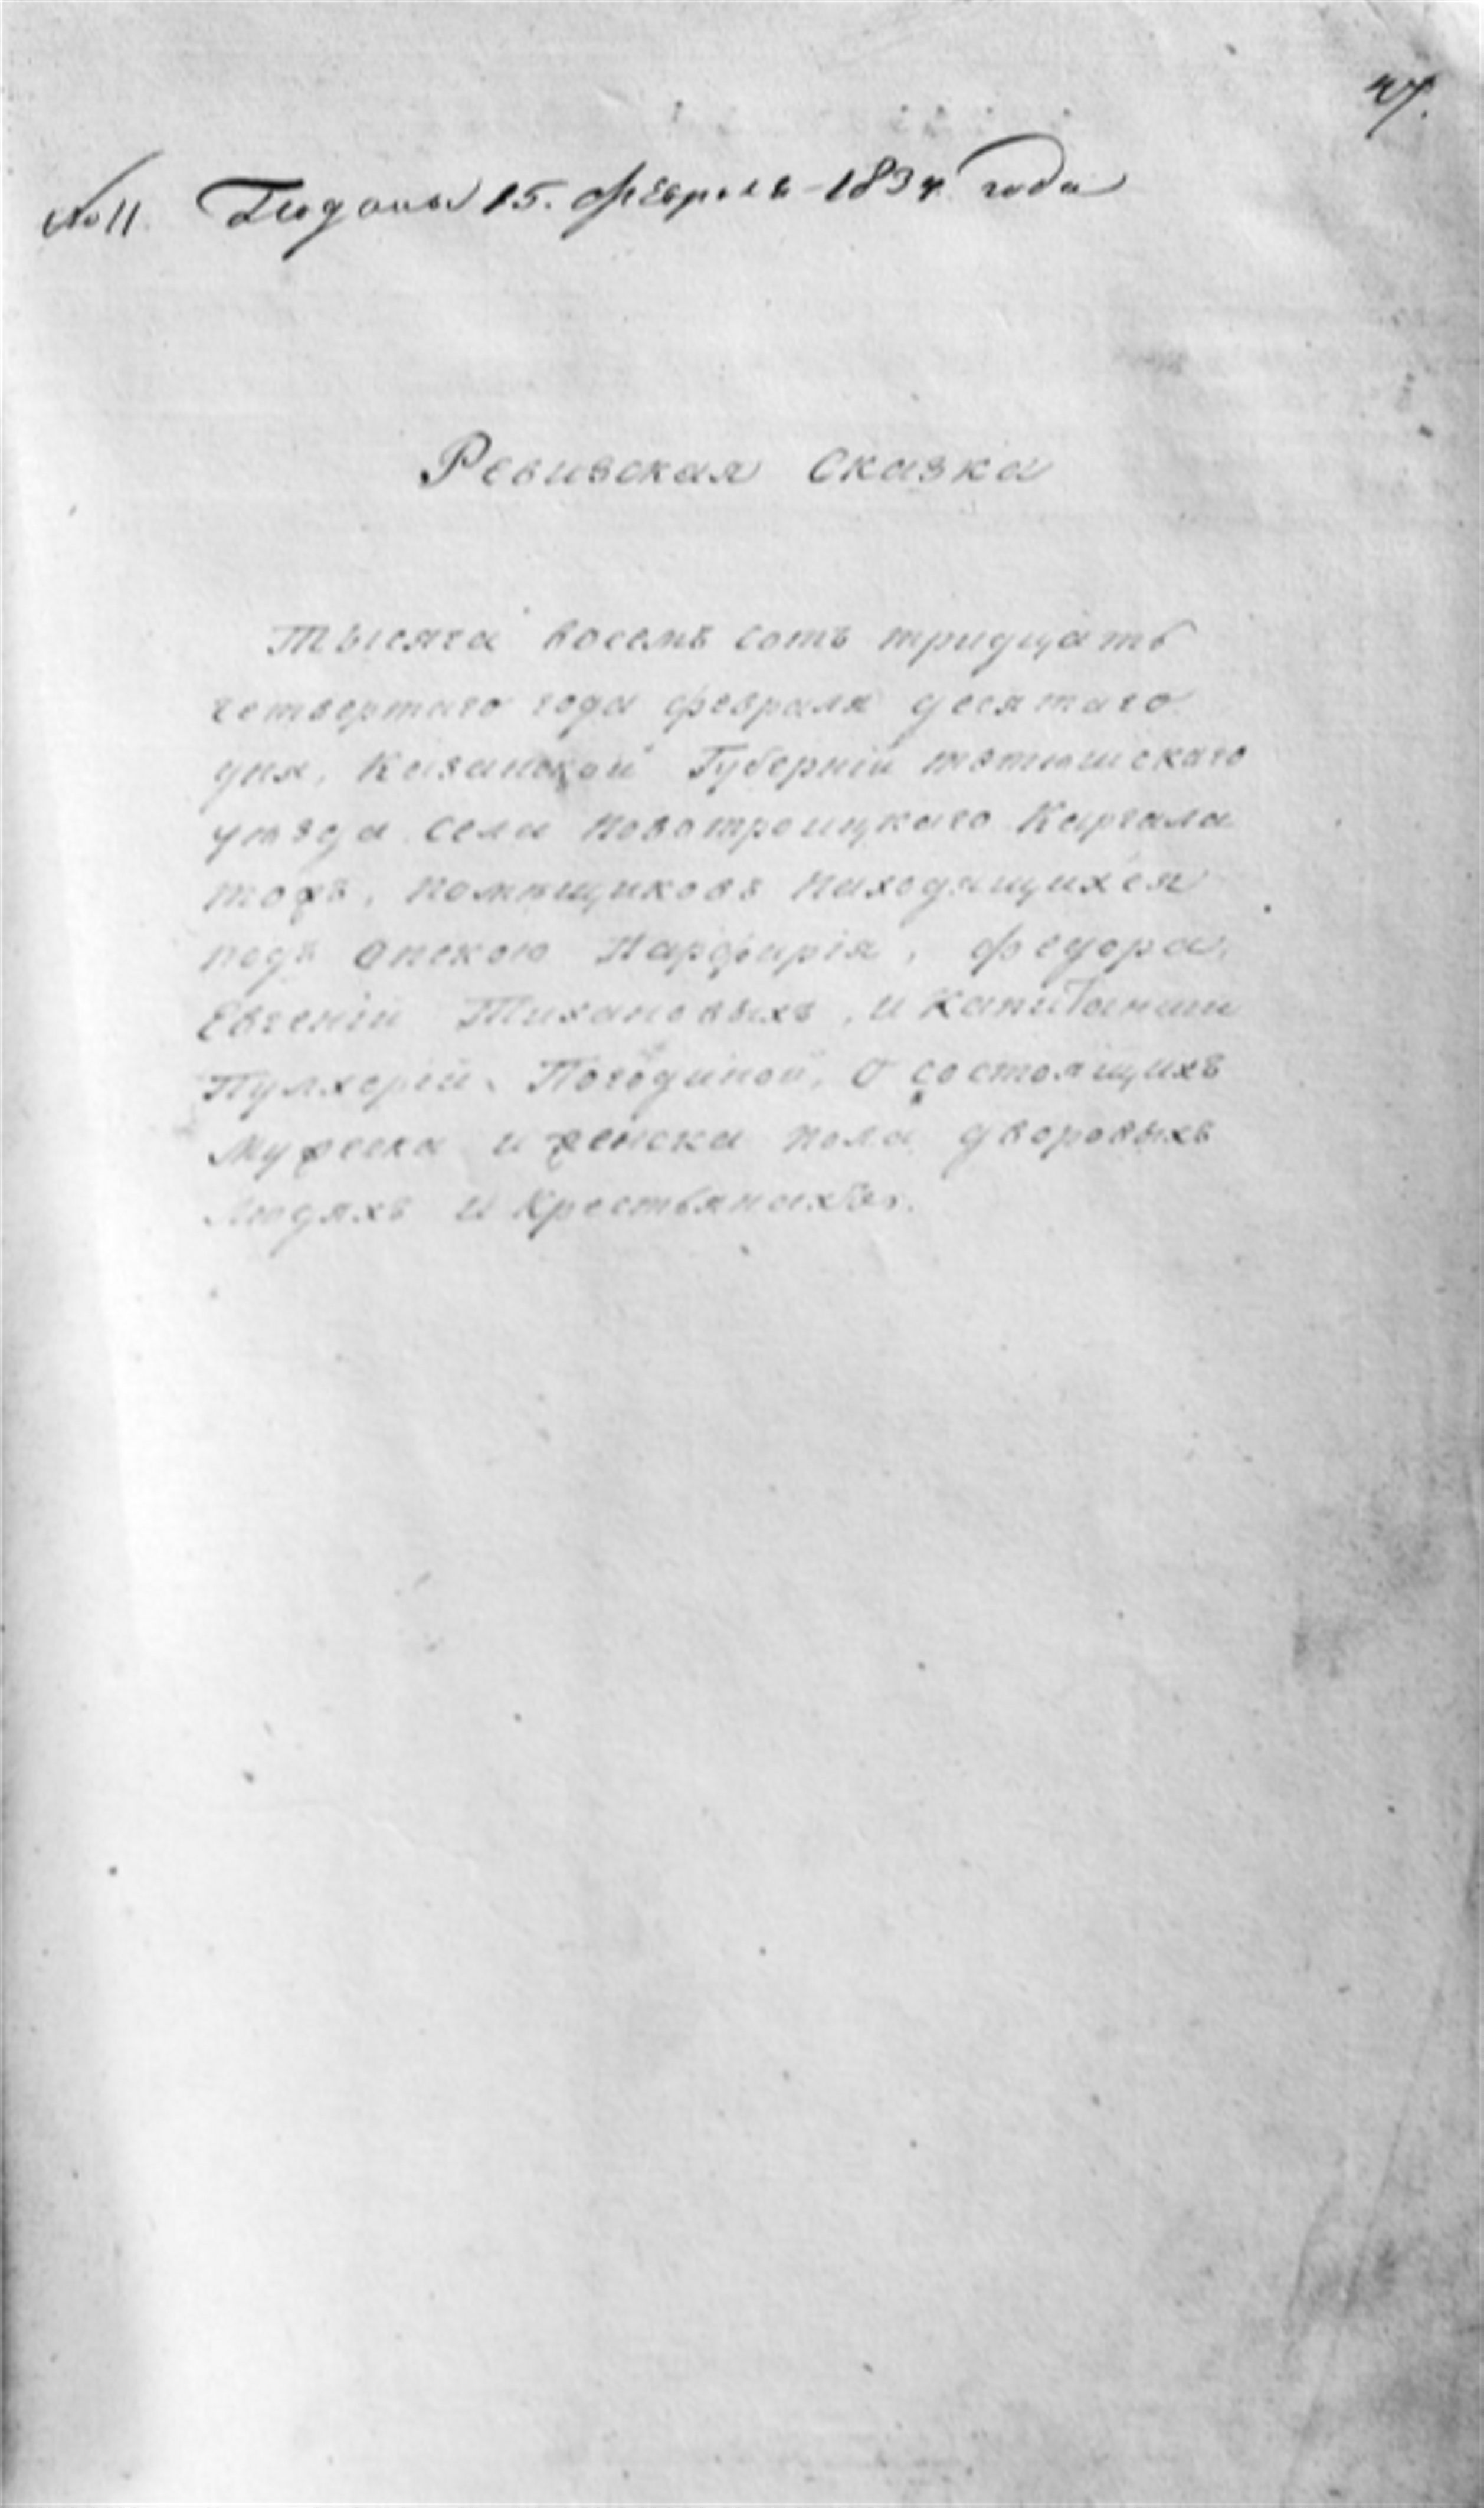 47.
№ 11. Подана 15. февраля 1834 года
Ревизская сказка
Тысяча восемь сотъ тридцать
четвертаго года февраля десятаго
дня, Казанской Губерніи тетюшскаго
уѣзда села Новотроицкаго Каргала
тожъ, помѣщиковъ находящихся
подъ опекою Парфирія, федора,
Евгеніи Тихановыхъ, и Капитанши
Пулхеріи Погодиной, о состоящихъ
мужеска и женска пола дворовыхъ
людяхъ и Крестьянахъ.